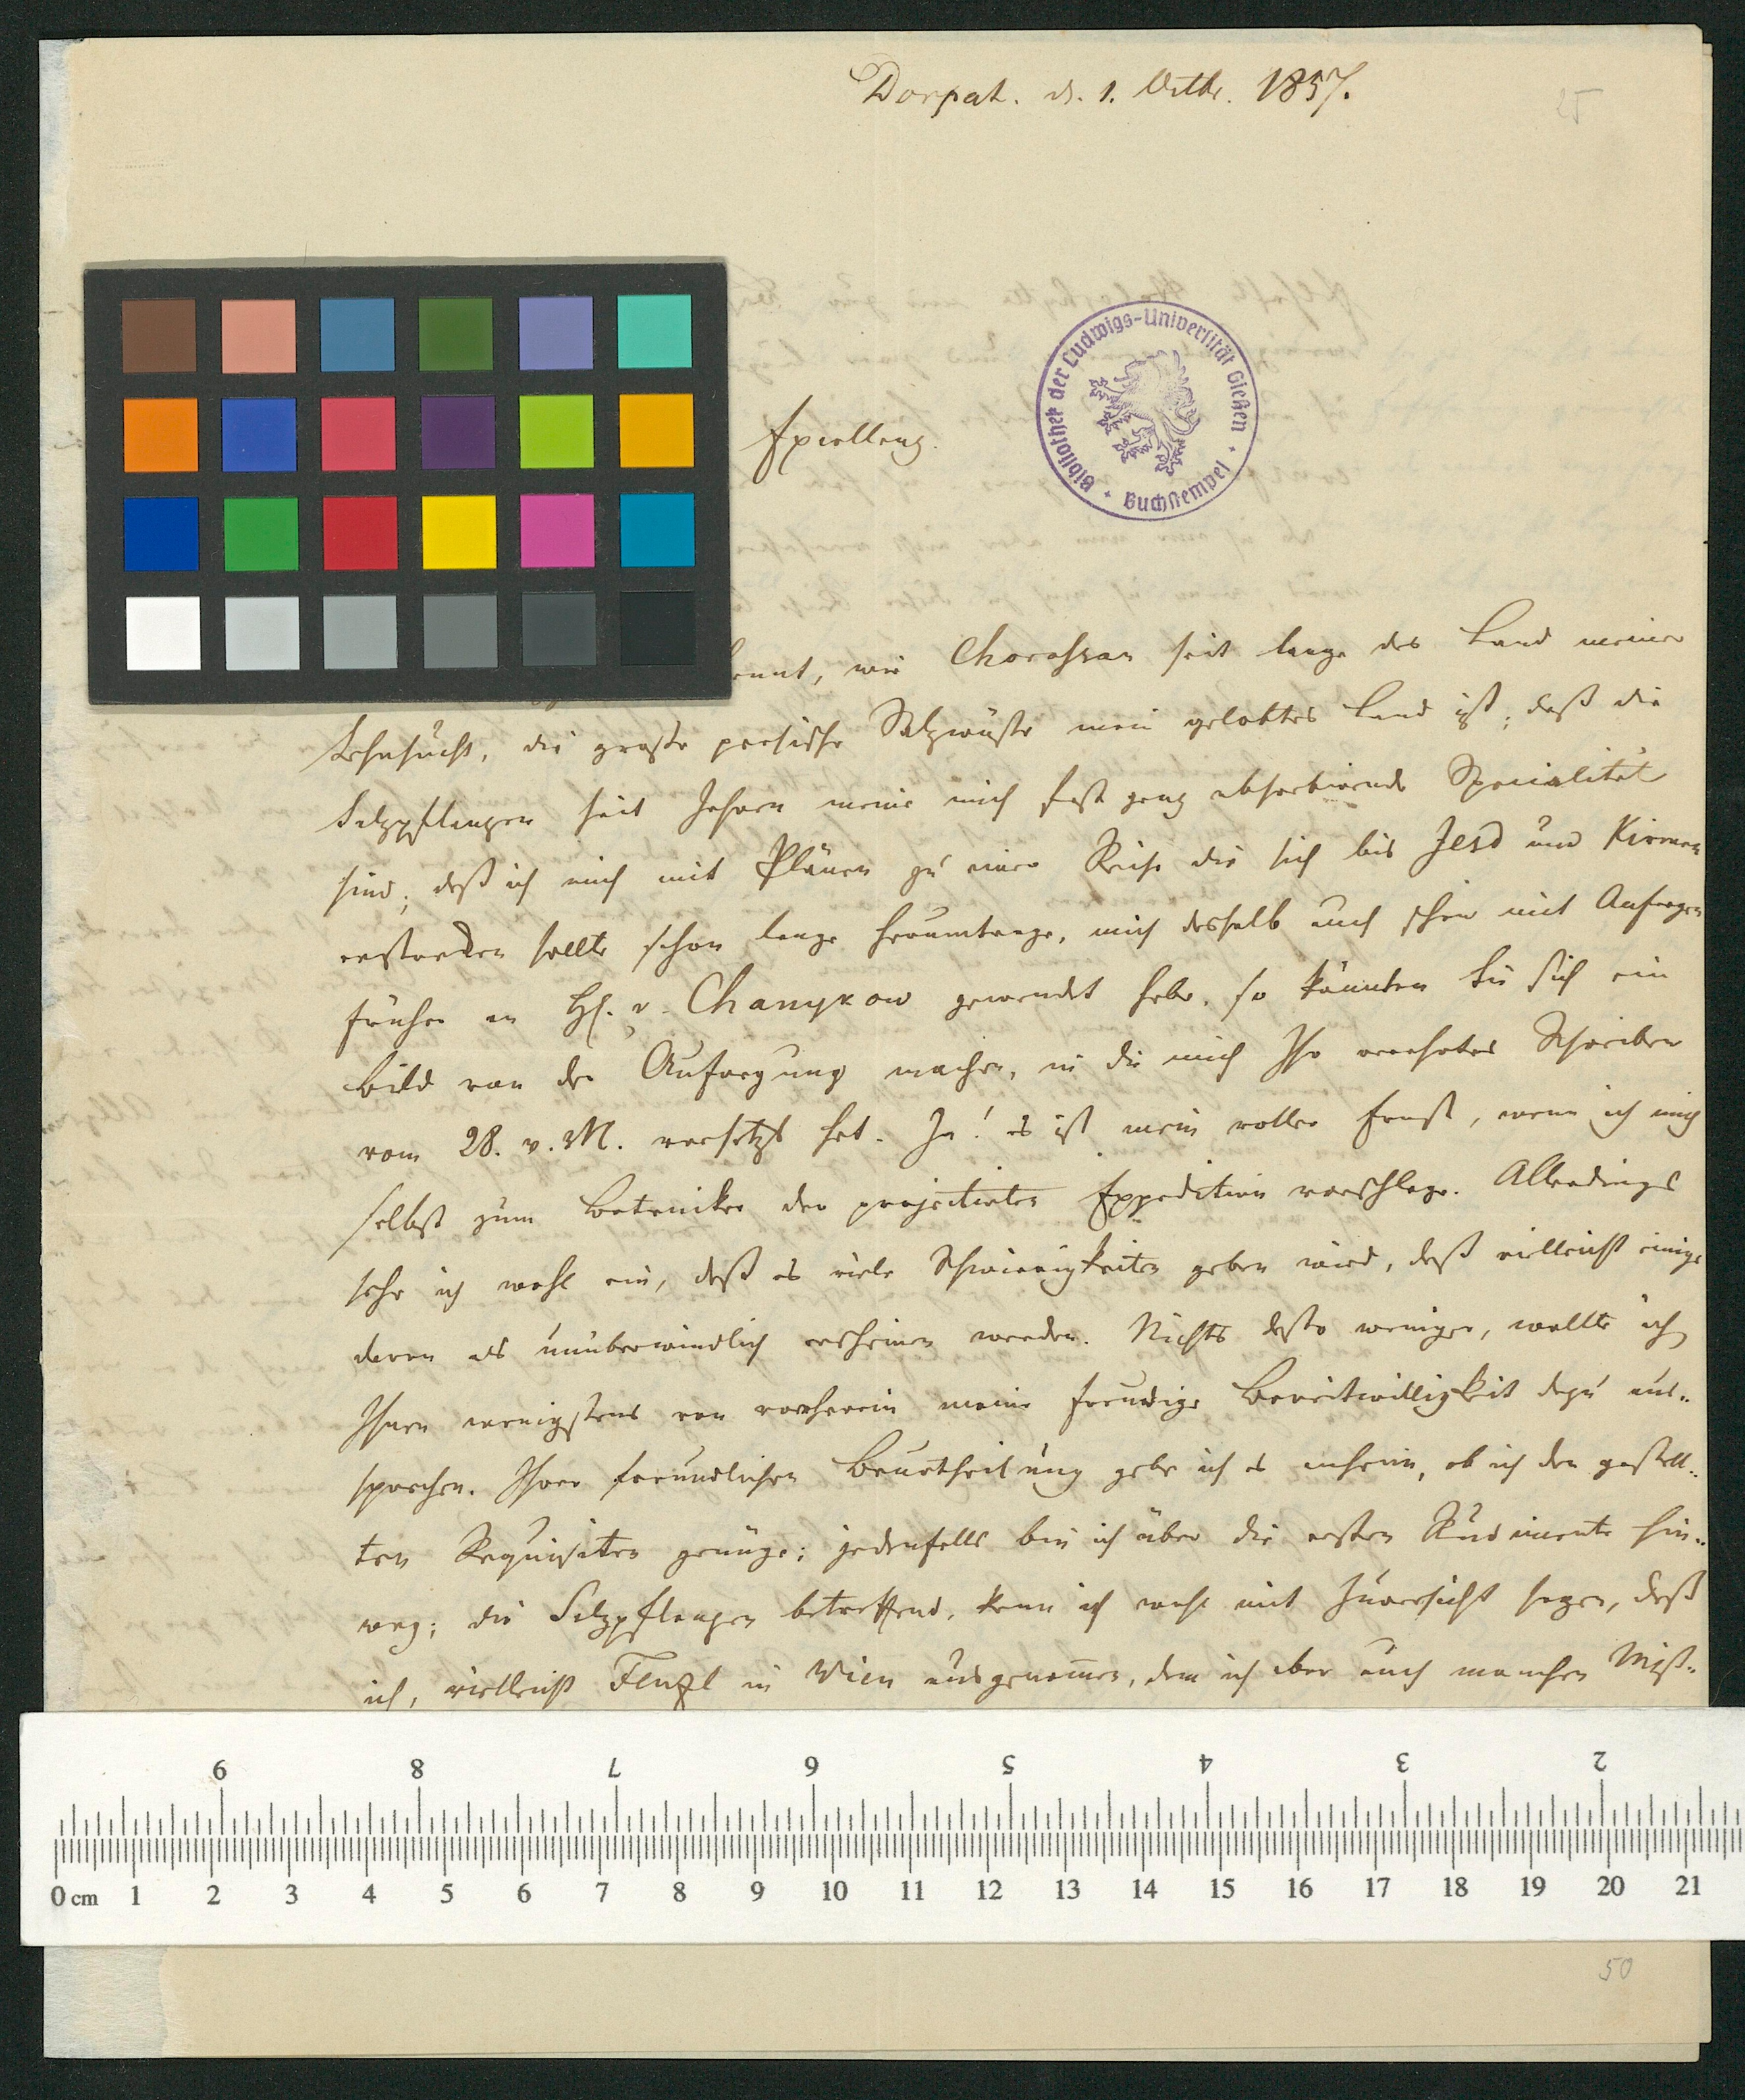 Dorpat. d. 1. Octbr. 1857.
25
Excellenz.
Bibliothek der Ludwigs-Universität Gießen
Buchstempel
wie Chorassan seit lange das Land meiner
Sehnsucht, die große persische Salzwüste mein gelobtes Land ist; daß die
Salzpflanzen seit Jahren meine mich fast ganz absorbirende Specialität
sind; daß ich mich mit Plänen zu einer Reise die sich bis Jesd und Kirman
erstrecken sollte schon lange herumtrage, mich deshalb auch schon mit Anfragen
früher an H. v. Chanykow gewendet habe, so könnten Sie sich ein
Bild von der Aufregung machen, in die mich Ihr verehrtes Schreiben
vom 28. v. M. versetzt hat. Ja! es ist mein voller Ernst, wenn ich mich
selbst zum Botaniker der projectirten Expedition vorschlage. Allerdings
sehe ich wohl ein, daß es viele Schwierigkeiten geben wird, daß vielleicht einige
davon als unüberwindlich erscheinen werden. Nichts desto weniger, wollte ich
Ihnen wenigstens von vornherein meine freudige Bereitwilligkeit dazu aus-
sprechen. Ihrer freundlichen Beurtheilung gebe ich es anheim, ob ich den gestell-
ten Requisiten genüge; jedenfalls bin ich über die ersten Rudimente hin-
weg; die Salzpflanzen betreffend, kann ich wohl mit Zuversicht sagen, daß
ich, vielleicht Fenzl in Wien ausgenomen, dem ich aber auch manchen Miß-
6 8 7 6 5 4 3 2
0 cm 1 2 3 4 5 6 7 8 9 10 11 12 13 14 15 16 17 18 19 20 21
50